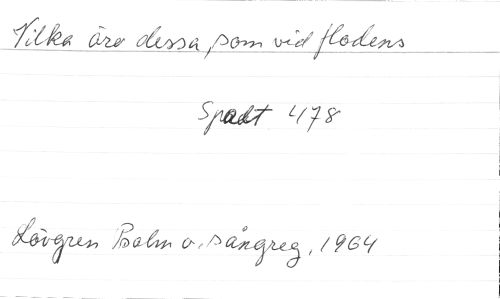 Vilka äro dessa, som vid flodens
Spadt 478
Lövgren Psalm o. sångreg. 1964